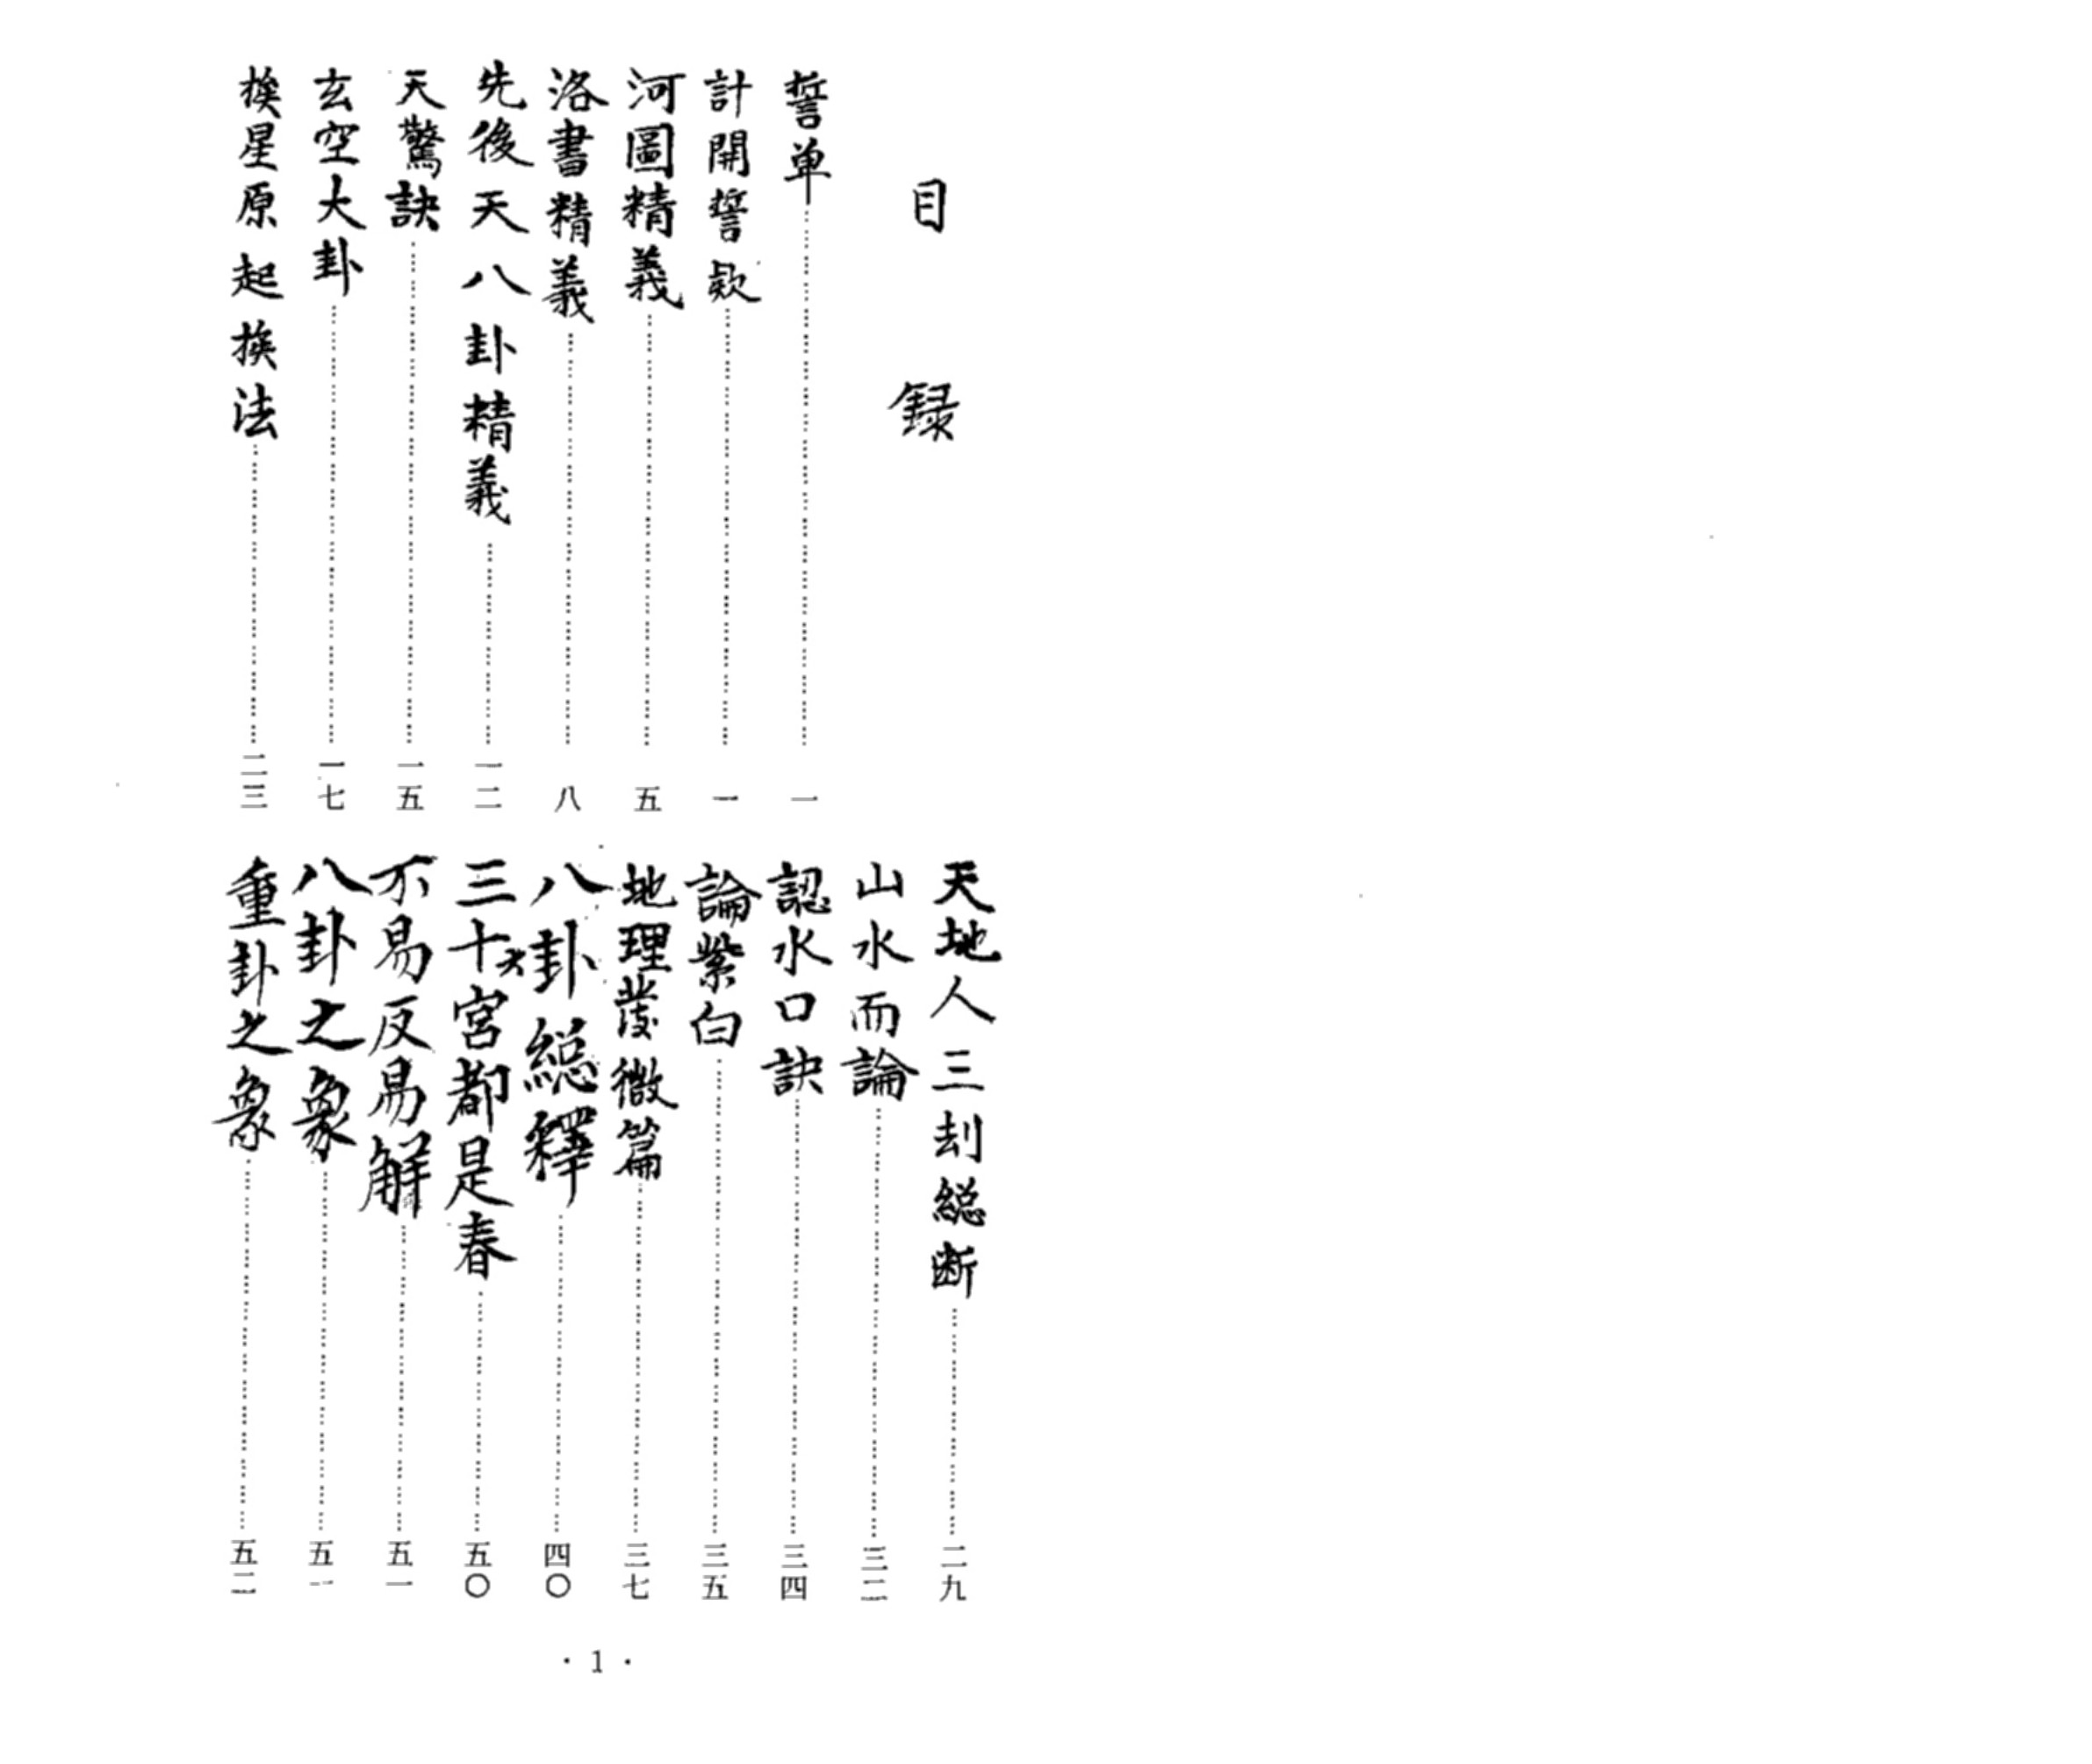 目録
誓单……一
計開誓欵……一
河圖精義……五
洛書精義……八
先後天八卦精義……一二
天驚訣……一五
玄空大卦……一七
挨星原起挨法……二三
天地人三刦総断……二九
山水而論……三二
認水口訣……三四
論紫白……三五
地理發微篇……三七
八卦総釋……四〇
三十六宮都是春……五〇
不易反易解……五一
八卦之象……五一
重卦之象……五二
·1·